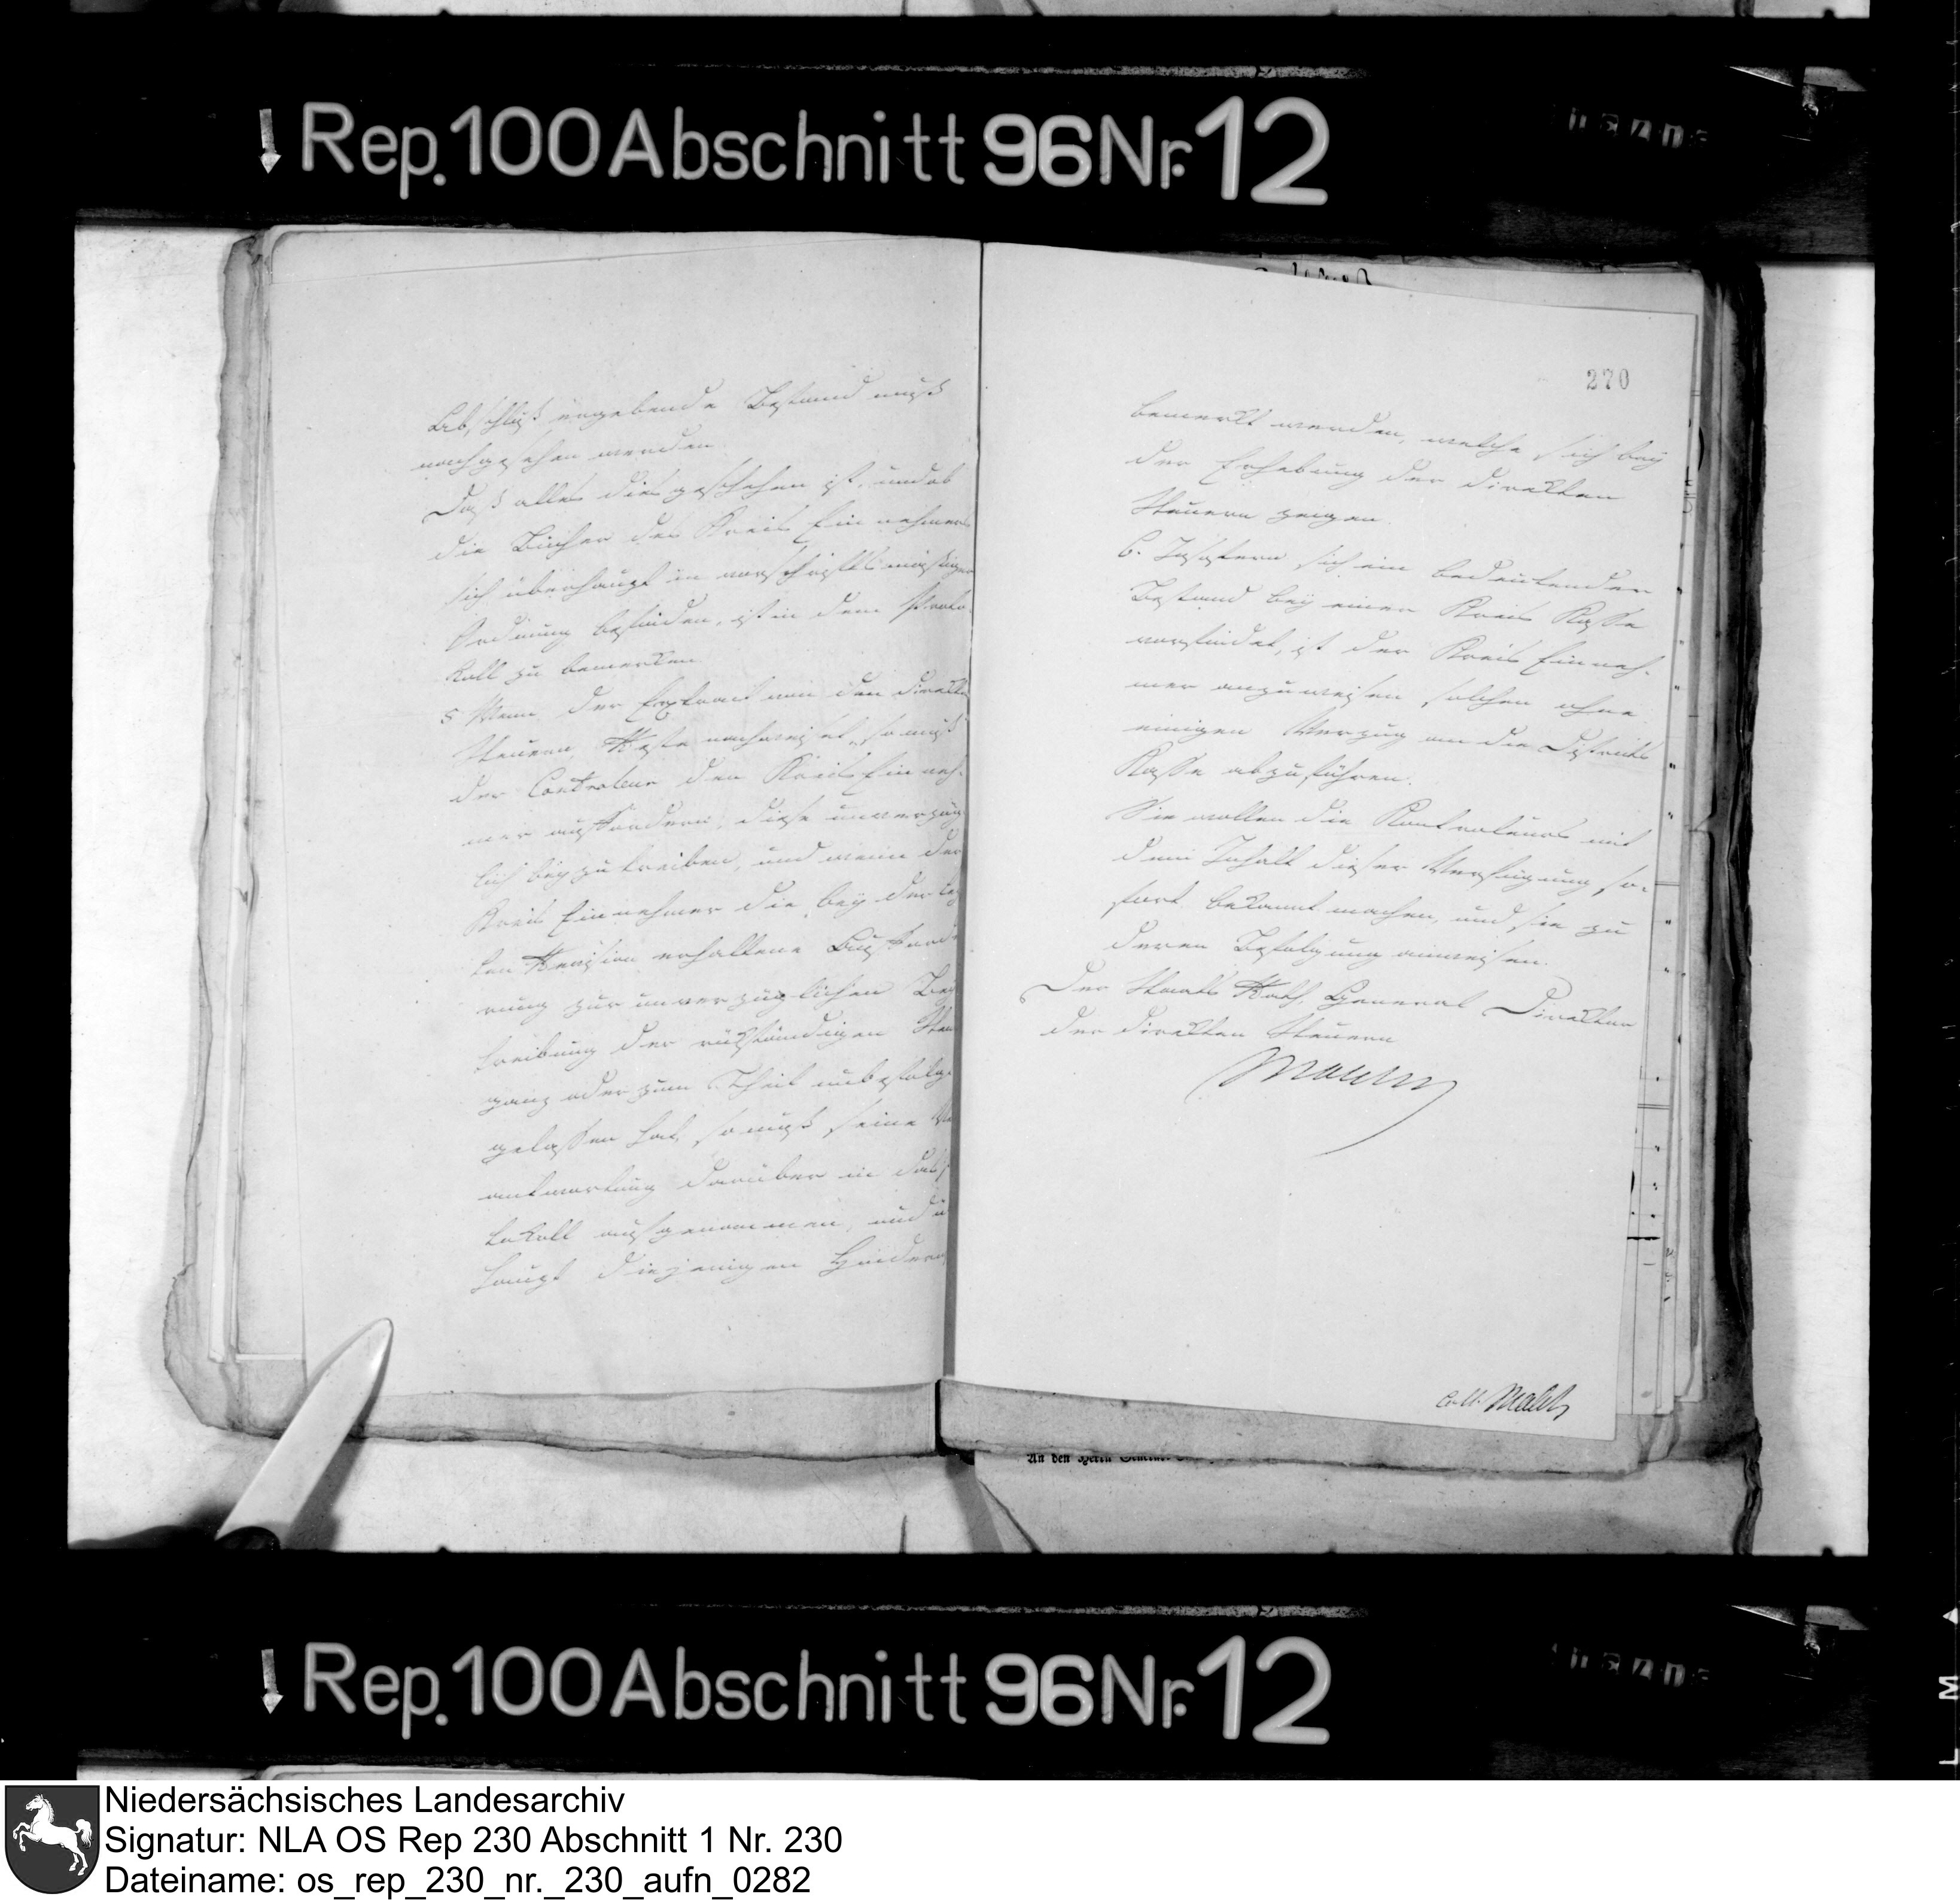 Rep. 100 Abschnitt 96 Nr. 12
Abschluß ergebende Bestand muß
nachgesehen werden
Daß alles dies geschehen ist, und ob
die Bücher des Kreis Einnehmers
sich überhaupt in vorschriftsmäßiger
Ordnung befinden, ist in dem Proto-
koll zu bemerken.
5. Wenn der Extract von den direkten
Steuern Reste nachweiset, so muß
der Controleur den Kreis Einneh-
mer auffordern, diese unverzüg-
lich beyzutreiben, und wenn der
Kreis Einnehmer die bey der letz
ten Revision erhaltene Aufforde
rung zur unverzüglichen Bey
treibung der rükständigen Steu
ganz oder zum Theil unbefolgt
gelassen hat, so muß seine Ver
antwortung darüber in das Pro
tokoll aufgenommen, und ü
haupt diejenigen Hindern
270
bemerkt werden, welche sich bey
der Erhebung der direkten
Steuern zeigen.
6. Insofern sich ein bedeutender
Bestand bey einer Kreis Kasse
vorfindet, ist der Kreis Einneh-
mer anzuweisen solchen ohne
einigen Verzug an die Distrikts
Kasse abzuführen.
Sie wollen die Kontroleurs mit
dem Inhalt dieser Verfügung so-
fort bekannt machen, und sie zu
deren Befolgung anweisen.
Der Staats Rath, General Direktor
der direkten Steuern
Coll.
An den Herrn
Rep. 100 Abschnitt 96 Nr. 12
Niedersächsisches Landesarchiv
Signatur: NLA OS Rep 230 Abschnitt 1 Nr. 230
Dateiname: os_rep_230_nr._230_aufn_0282